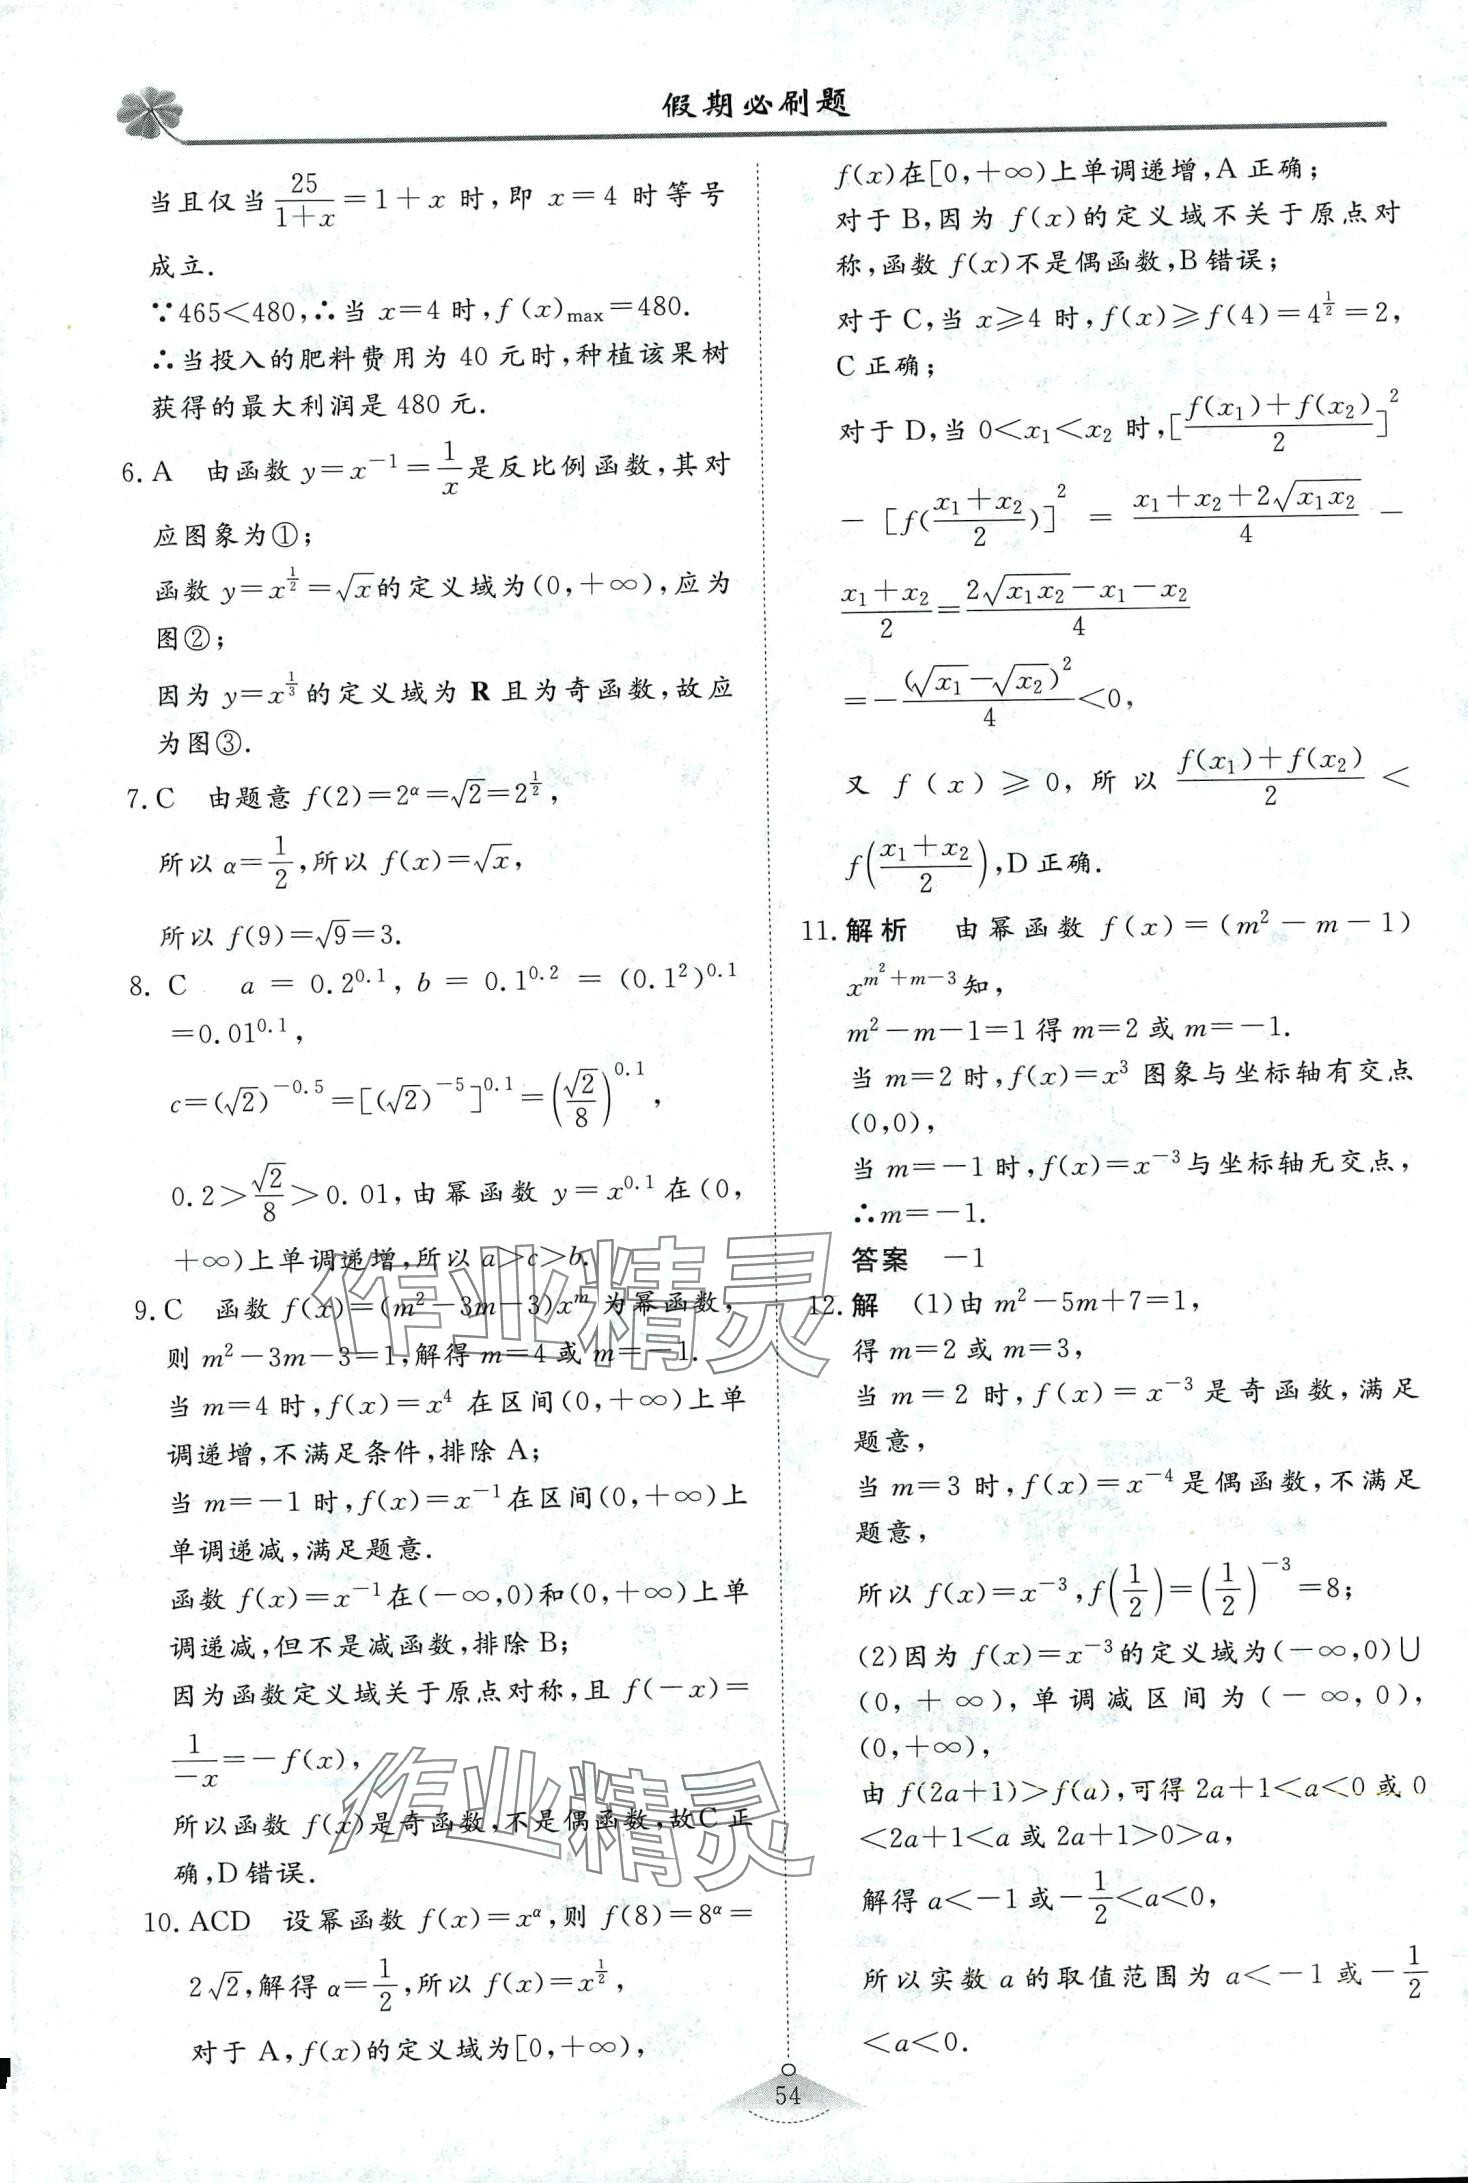 假期必刷题
当且仅当 25/(1+x)=1+x 时,即 x=4 时等号
成立.
∵465<480,∴当 x=4 时,f(x)max=480.
∴当投入的肥料费用为 40 元时,种植该果树
获得的最大利润是 480 元.
6. A 由函数 y=x⁻¹=1/x 是反比例函数,其对
应图象为①;
函数 y=x^(1/2)=√x的定义域为(0,+∞),应为
图②;
因为 y=x^(1/3)的定义域为 R 且为奇函数,故应
为图③.
7. C 由题意 f(2)=2^α=√2=2^(1/2),
所以 α=1/2,所以 f(x)=√x,
所以 f(9)=√9=3.
8. C a=0.2^0.1,b=0.1^0.2=(0.1²)^0.1
=0.01^0.1,
c=(√2)^(-0.5)=[(√2)^(-5)]^0.1=(√2/8)^0.1,
0.2>√2/8>0.01,由幂函数 y=x^0.1在(0,
+∞)上单调递增,所以 a>c>b.
9. C 函数 f(x)=(m²-3m-3)x^m 为幂函数,
则 m²-3m-3=1,解得 m=4 或 m=-1.
当 m=4 时,f(x)=x⁴ 在区间(0,+∞)上单
调递增,不满足条件,排除 A;
当 m=-1 时,f(x)=x⁻¹在区间(0,+∞)上
单调递减,满足题意.
函数 f(x)=x⁻¹在(-∞,0)和(0,+∞)上单
调递减,但不是减函数,排除 B;
因为函数定义域关于原点对称,且 f(-x)=
1/(-x)=-f(x),
所以函数 f(x)是奇函数,不是偶函数,故C正
确,D错误.
10. ACD 设幂函数 f(x)=x^α,则 f(8)=8^α=
2√2,解得 α=1/2,所以 f(x)=x^(1/2),
对于 A,f(x)的定义域为[0,+∞),
f(x)在[0,+∞)上单调递增,A正确;
对于 B,因为 f(x)的定义域不关于原点对
称,函数 f(x)不是偶函数,B错误;
对于 C,当 x≥4 时,f(x)≥f(4)=4^(1/2)=2,
C正确;
对于 D,当 0<x₁<x₂ 时,[(f(x₁)+f(x₂))/2]²
-[f((x₁+x₂)/2)]²=(x₁+x₂+2√(x₁x₂))/4-
(x₁+x₂)/2=(2√(x₁x₂)-x₁-x₂)/4
=-(√x₁-√x₂)²/4<0,
又 f(x)≥0,所以 (f(x₁)+f(x₂))/2<
f((x₁+x₂)/2),D正确.
11. 解析 由幂函数 f(x)=(m²-m-1)
x^(m²+m-3)知,
m²-m-1=1得 m=2或 m=-1.
当 m=2时,f(x)=x³ 图象与坐标轴有交点
(0,0),
当 m=-1时,f(x)=x⁻³与坐标轴无交点,
∴m=-1.
答案 -1
12. 解 (1)由 m²-5m+7=1,
得 m=2 或 m=3,
当 m=2 时,f(x)=x⁻³ 是奇函数,满足
题意,
当 m=3 时,f(x)=x⁻⁴是偶函数,不满足
题意,
所以 f(x)=x⁻³,f(1/2)=(1/2)⁻³=8;
(2)因为 f(x)=x⁻³的定义域为(-∞,0)∪
(0,+∞),单调减区间为(-∞,0),
(0,+∞),
由 f(2a+1)>f(a),可得 2a+1<a<0 或 0
<2a+1<a 或 2a+1>0>a,
解得 a<-1或-1/2<a<0,
所以实数 a 的取值范围为 a<-1 或-1/2
<a<0.
54
作业精灵
作业精灵